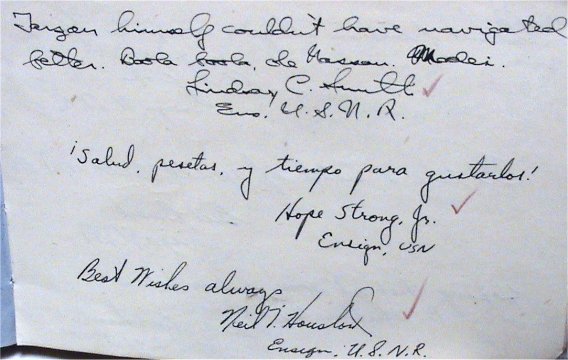 Tarzan himself couldn't have navigated
better. Boola boola, de Masson. Modei.
Lindsay C. Smith
Ens. U.S.N.R.
¡Salud, pesetas, y tiempo para gustarlos!
Hope Strong, Jr.
Ensign, USN
Best Wishes always
Neil T. Houston
Ensign. U.S.N.R.